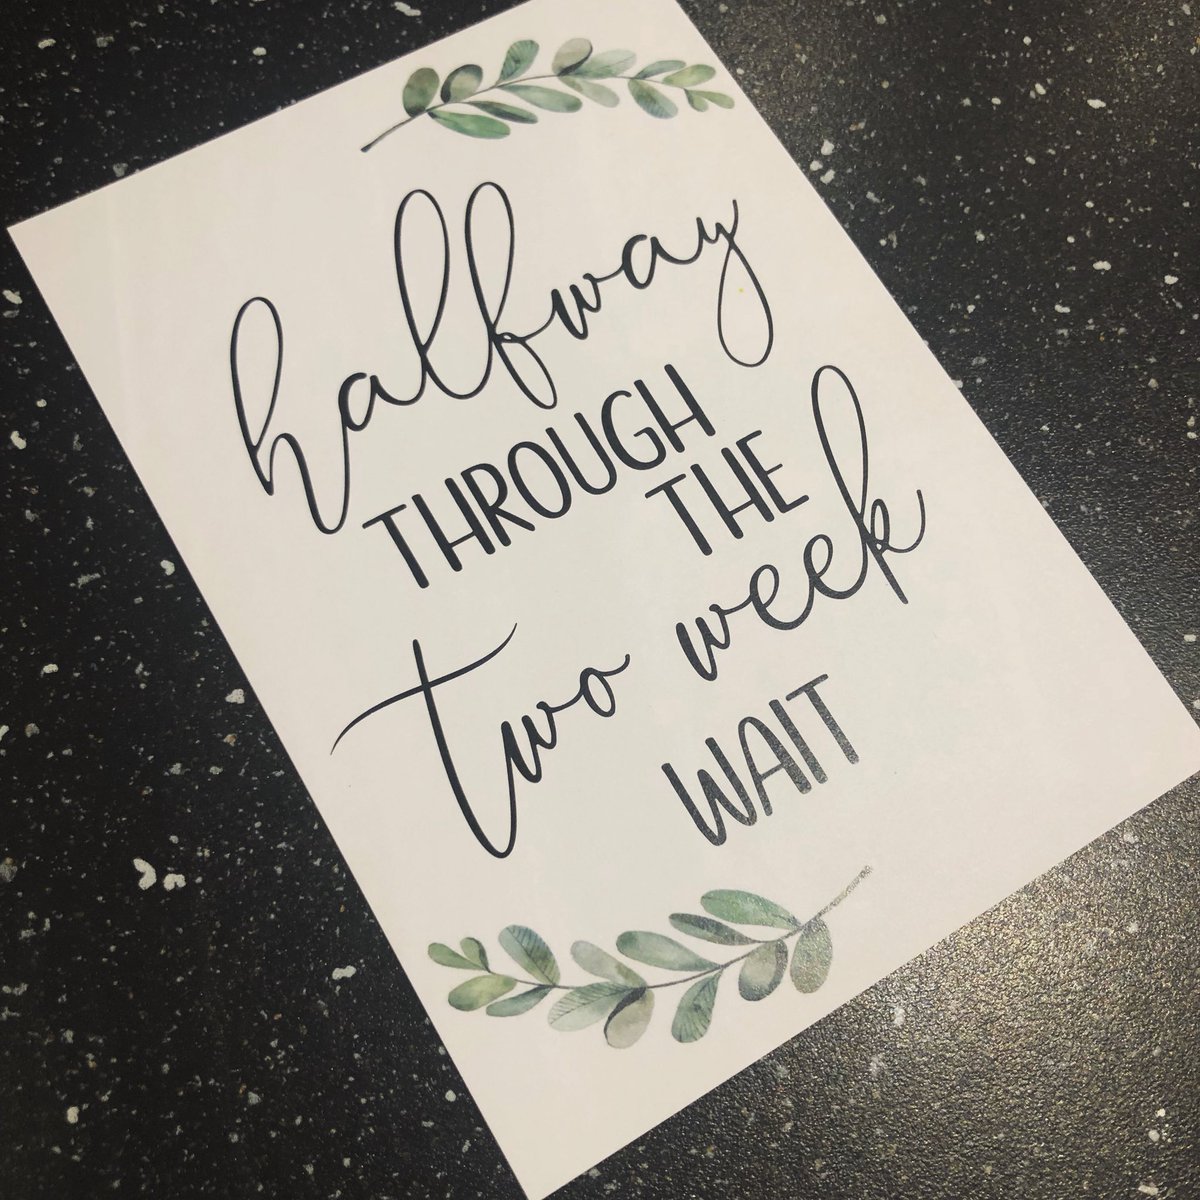 halfway
THROUGH
THE
two week
WAIT